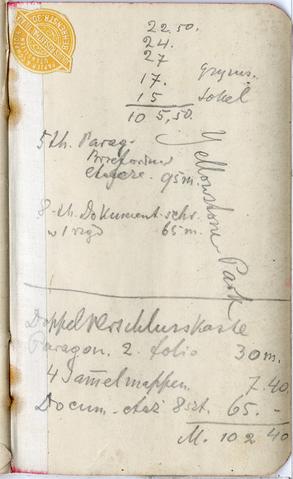 22.50.
24.
27
17. gzyms.
15 Sokel
105,50.
5 th. Parag.
95 m.
8-th. Dokument-schr.
w 1 rząd 65 m.
Yellowstone Park
Doppelverschlusskaste
Paragon. 2. folio 30 m.
4 Samelmappen 7.40.
Docum.-etaż 8 szt. 65.-
M. 102 40